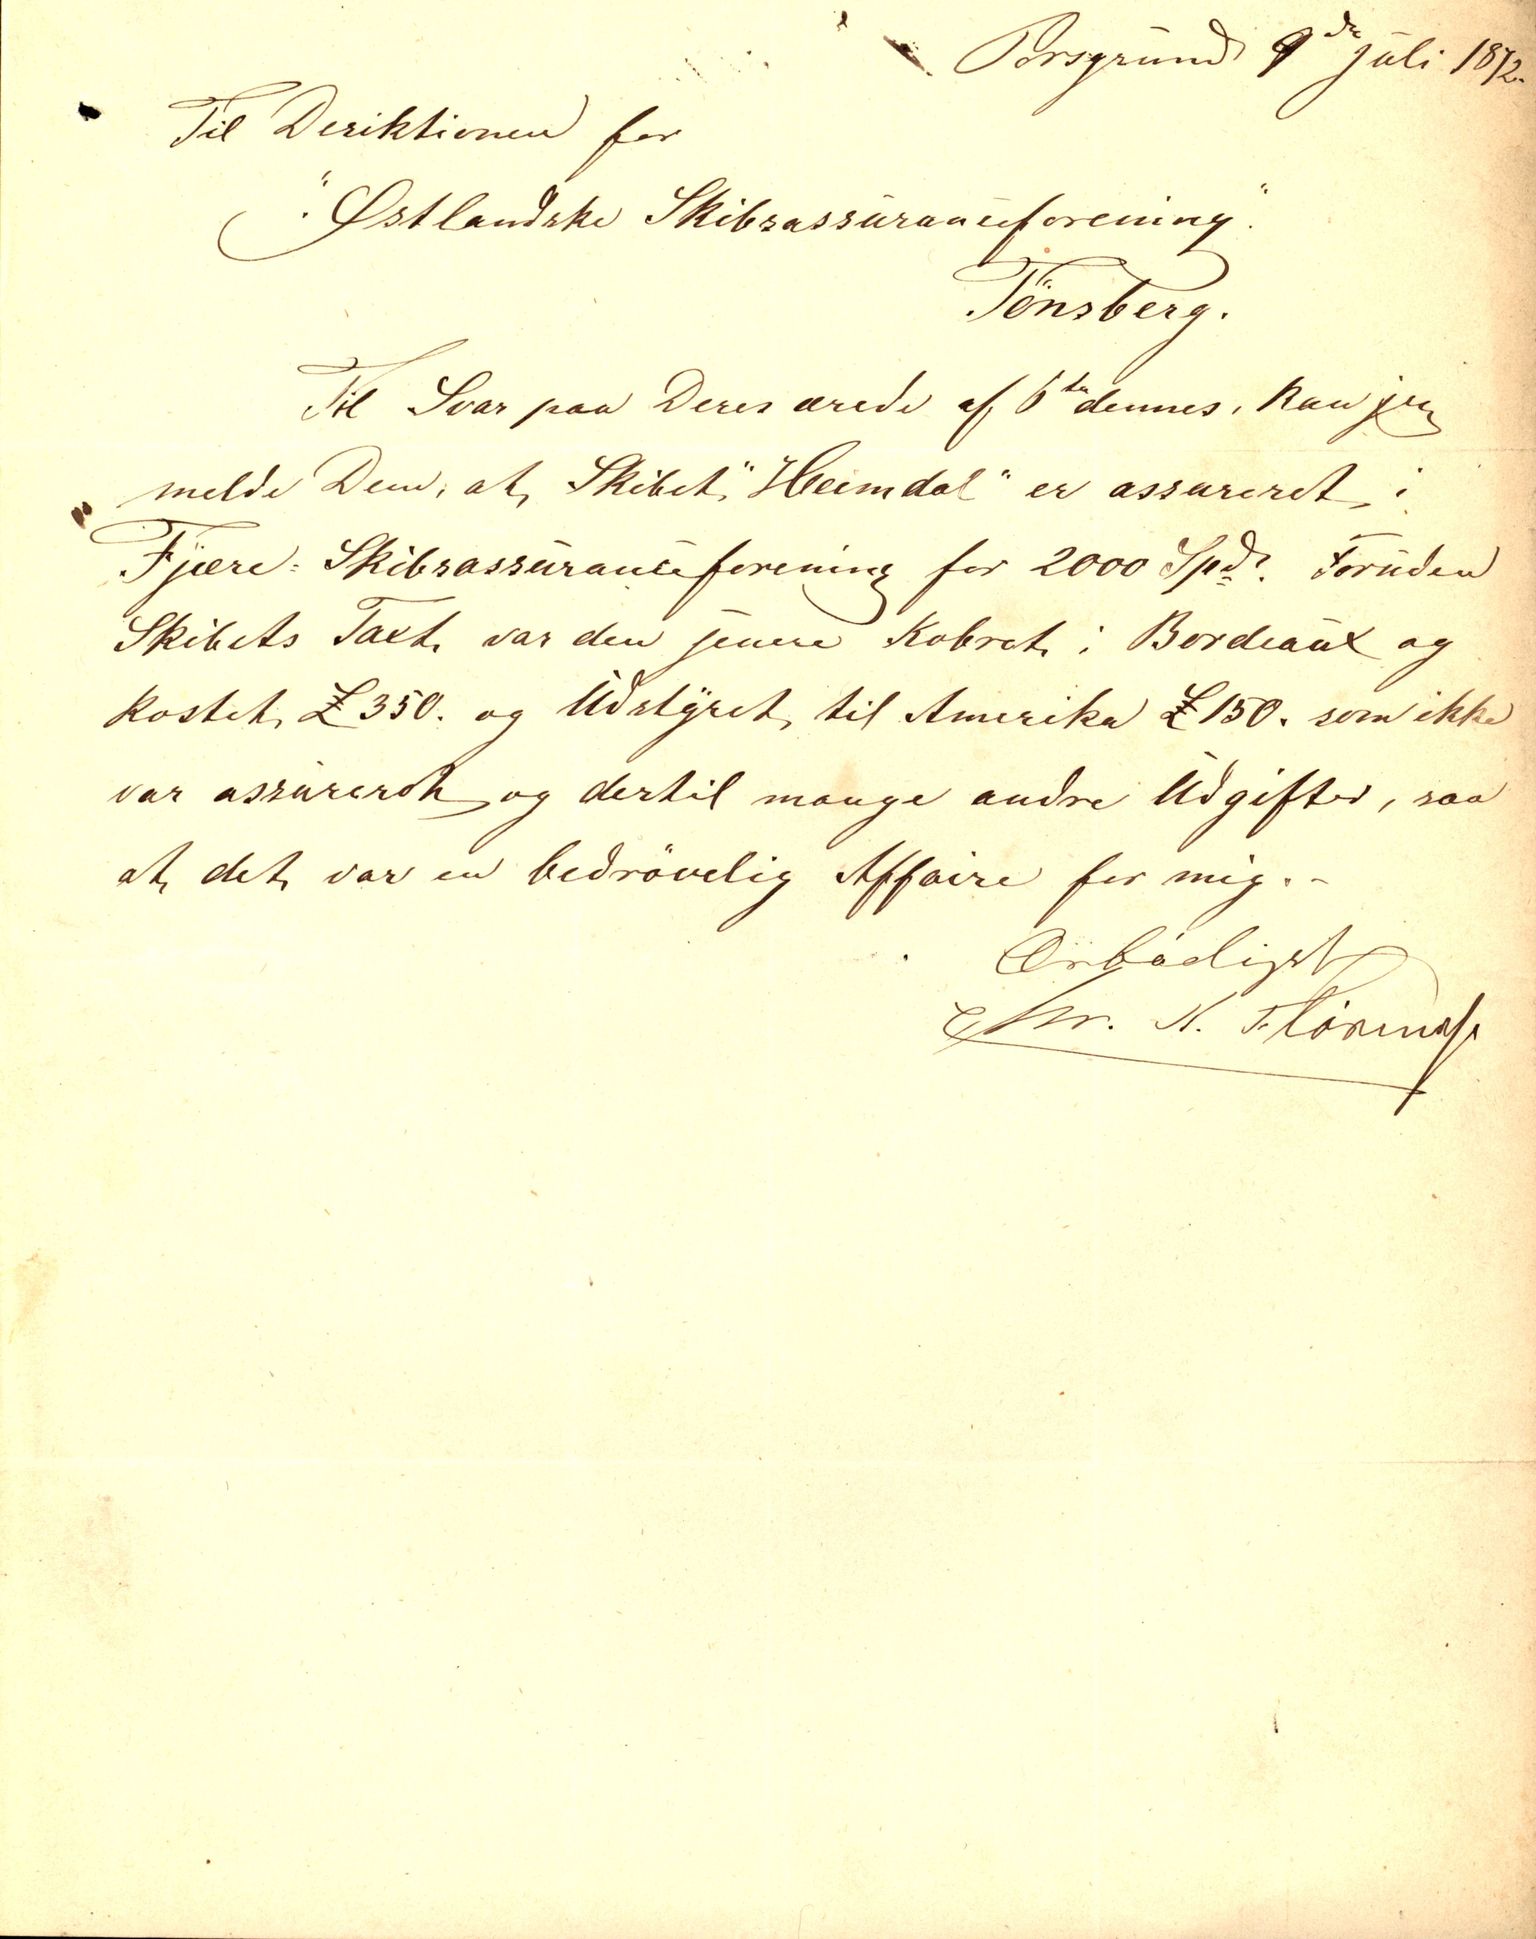 Porsgrund 9de Juli 1872.
Til Deriktionen for
"Østlandske Skibsassuranceforening".
Tönsberg.
Til Svar paa Deres ærede af 6te dennes, kan jeg
melde Dem, at Skibet "Heimdal" er assureret i
Fjære-Skibsassuranceforening for 2000 Spd. Foruden
Skibets Taxt, var den jeune Kobret i Bordeaux og
kostet £350. og Udstyret til Amerika £150. som ikke
var assureret og dertil mange andre Udgifter, saa
at det var en bedrövelig Affaire for mig.-
Ærbödigst
Chr. N.